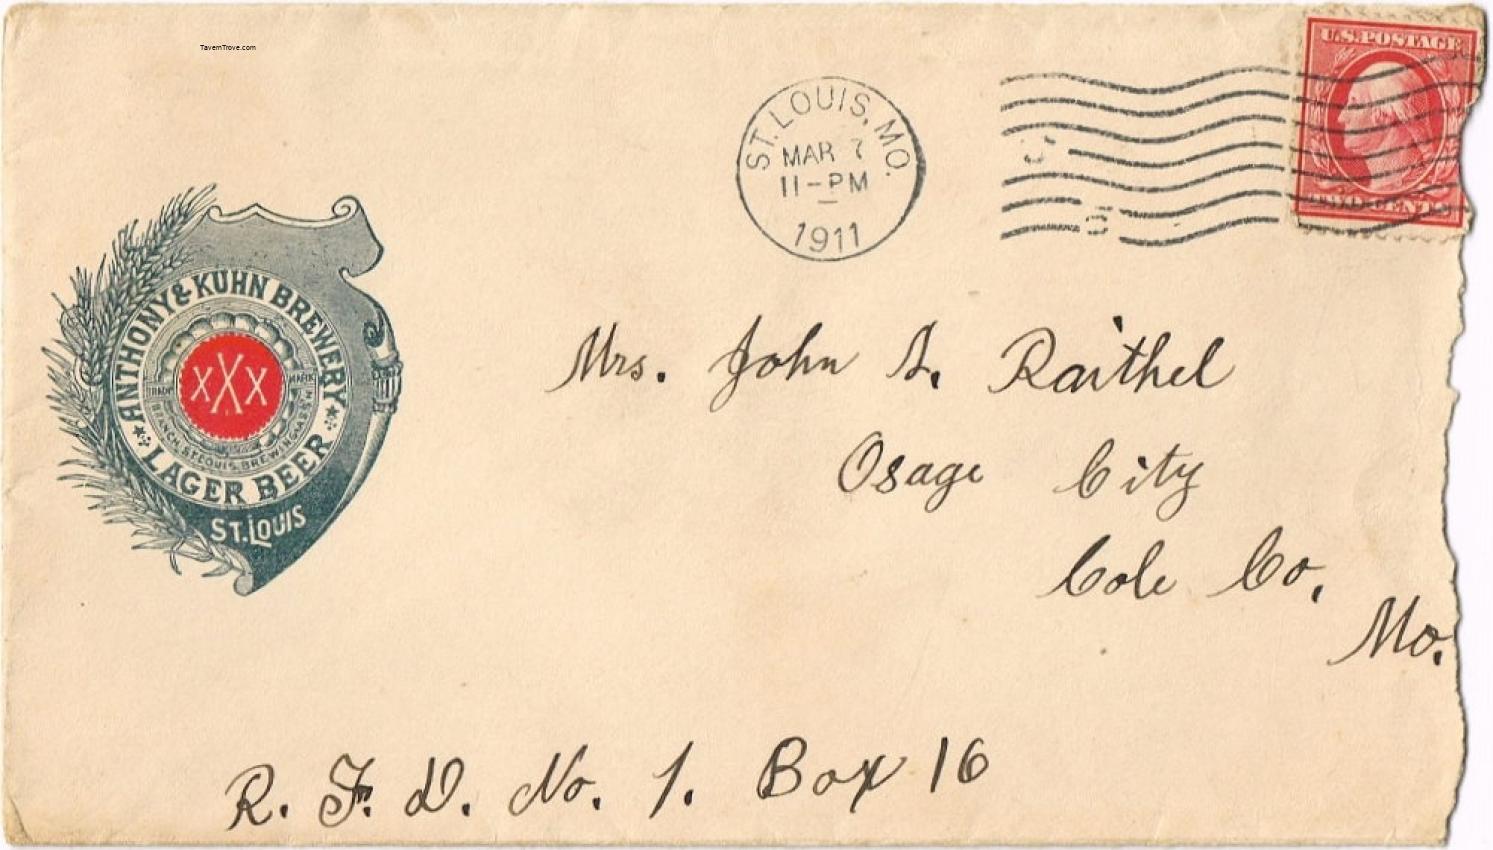 TavernTrove.com
U.S. POSTAGE
TWO CENTS
ST. LOUIS, MO.
MAR 7
11-PM
1911
ANTHONY & KUHN BREWERY
XXX
TRADE MARK
BRANCH ST. LOUIS BREWING ASS'N
LAGER BEER
ST. LOUIS
Mrs. John S. Raithel
Osage City
Cole Co.
Mo.
R. F. D. No. 1. Box 16